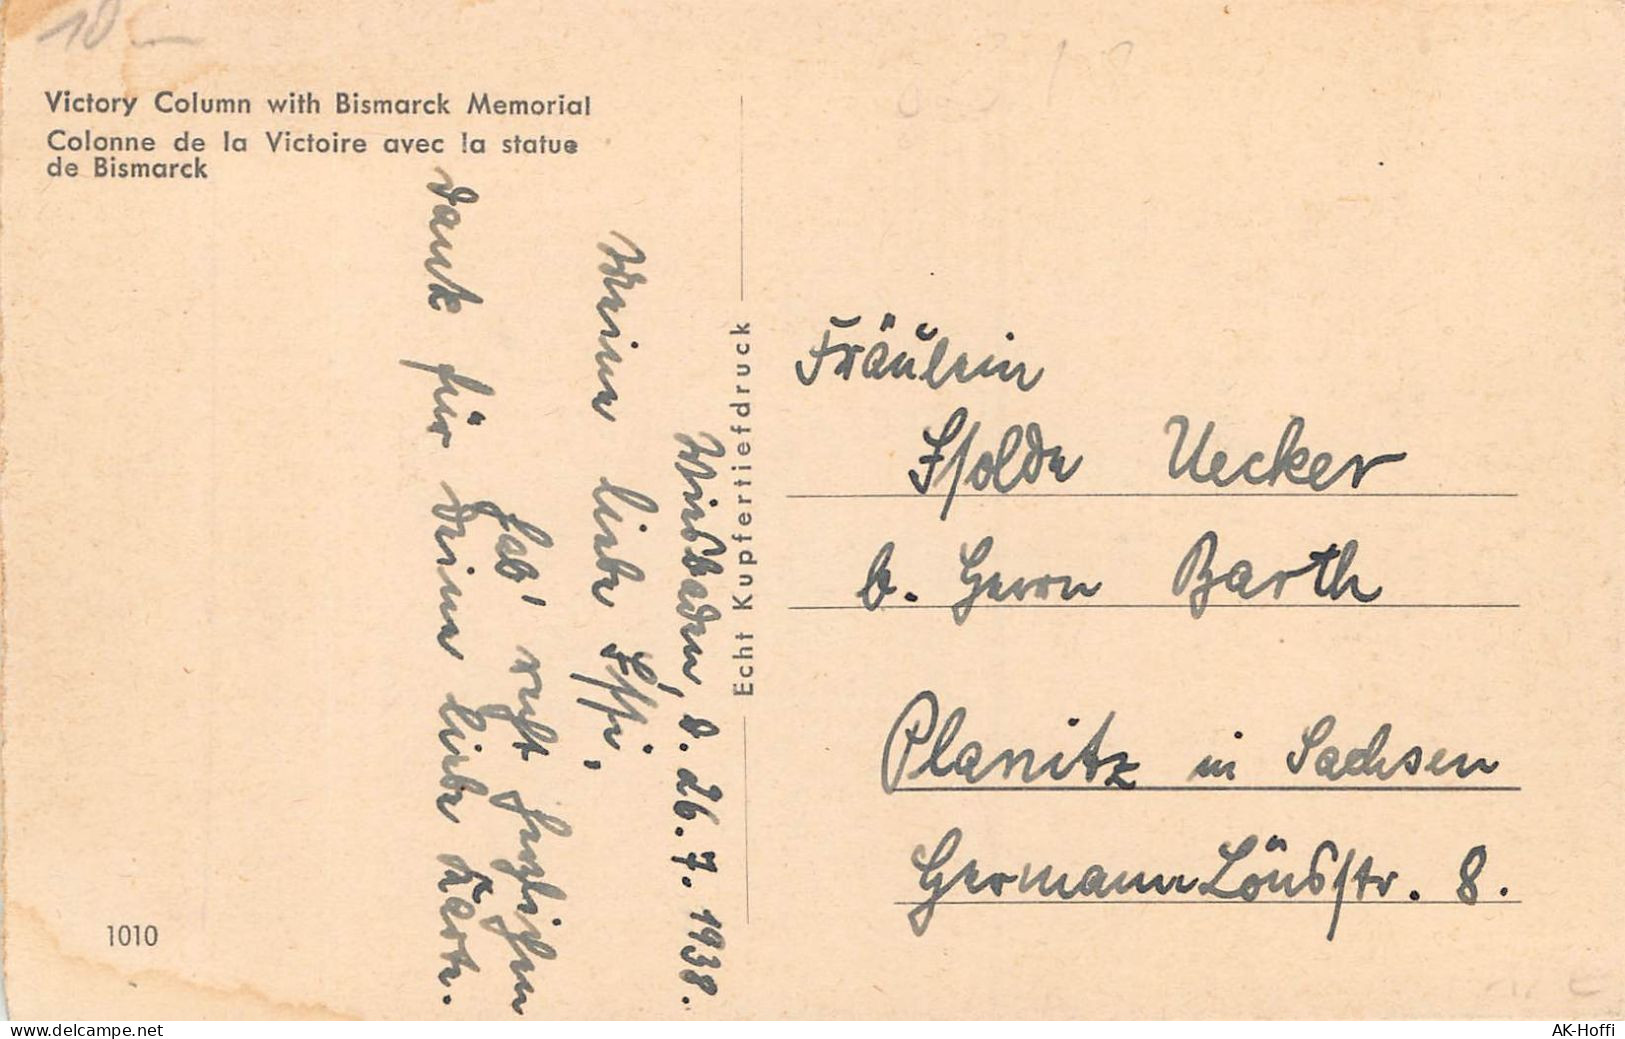 10 —
Victory Column with Bismarck Memorial
Colonne de la Victoire avec la statue
de Bismarck
Wiesbaden, d. 26. 7. 1938.
Meine liebe Issi,
Hab' recht herzlichen
Dank für Deine liebe Karte.
Echt Kupfertiefdruck
Fräulein
Isolde Uecker
b. Herrn Barth
Planitz in Sachsen
Hermann Lönsstr. 8.
1010
AK-Hoffi
delcampe.net